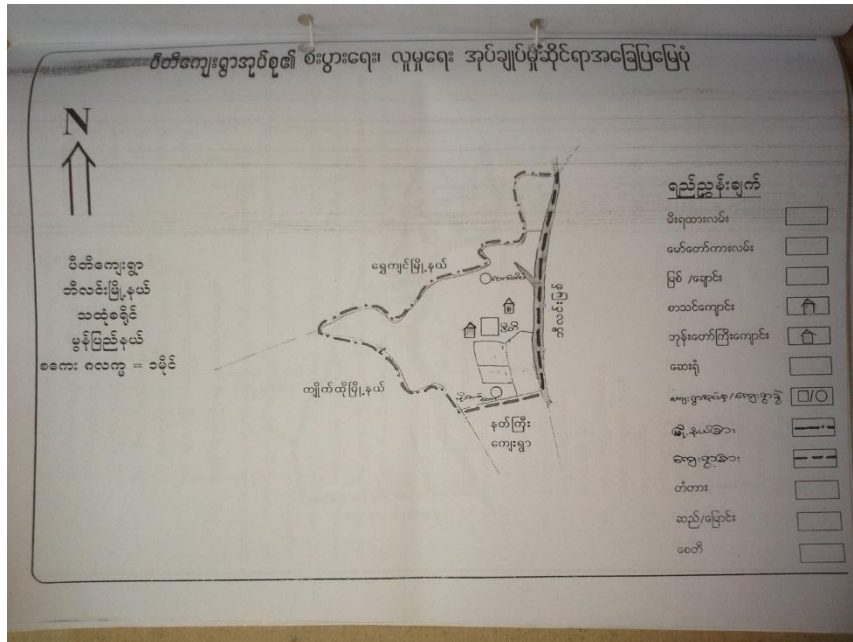 ပီတိကျေးရွာအုပ်စု၏ စီးပွားရေး၊ လူမှုရေး အုပ်ချုပ်မှုဆိုင်ရာအခြေပြမြေပုံ
N
ပီတိကျေးရွာ
ဘီလင်းမြို့နယ်
သထုံခရိုင်
မွန်ပြည်နယ်
စကေး ဂလက္မ = ၁မိုင်
ရွှေကျင်မြို့နယ်
ကျိုက်ထိုမြို့နယ်
ပီတိ
ဘီလင်းမြစ်
နတ်ကြီး
ကျေးရွာ
ရည်ညွှန်းချက်
မီးရထားလမ်း
မော်တော်ကားလမ်း
မြစ် /ချောင်း
စာသင်ကျောင်း
ဘုန်းတော်ကြီးကျောင်း
ဆေးရုံ
ကျေးရွာအုပ်စု/ကျေးရွာခွဲ
မြို့နယ်ခြား
ကျေးရွာခြား
တံတား
ဆည်/မြောင်း
စေတီ